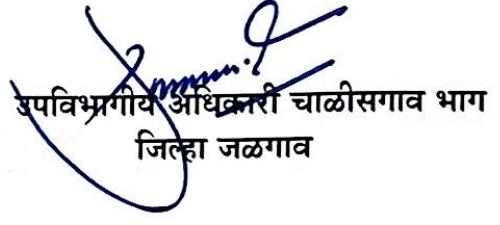 उपविभागीय अधिकारी चाळीसगाव भाग
जिल्हा जळगाव